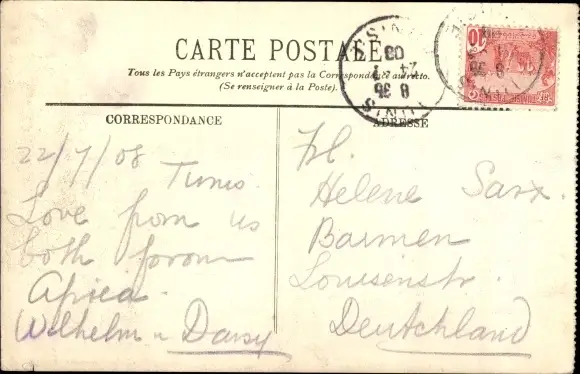 CARTE POSTALE
Tous les Pays étrangers n'acceptent pas la Correspondance au recto.
(Se renseigner à la Poste).
CORRESPONDANCE
22/7/08
Tunis.
Love from us
both from
Africa.
Wilhelm u Daisy
ADRESSE
Frl.
Helene Sarx.
Barmen
Louisenstr.
Deutchland
TUNIS
TUNISIE
8 35
24 - 7
08
10